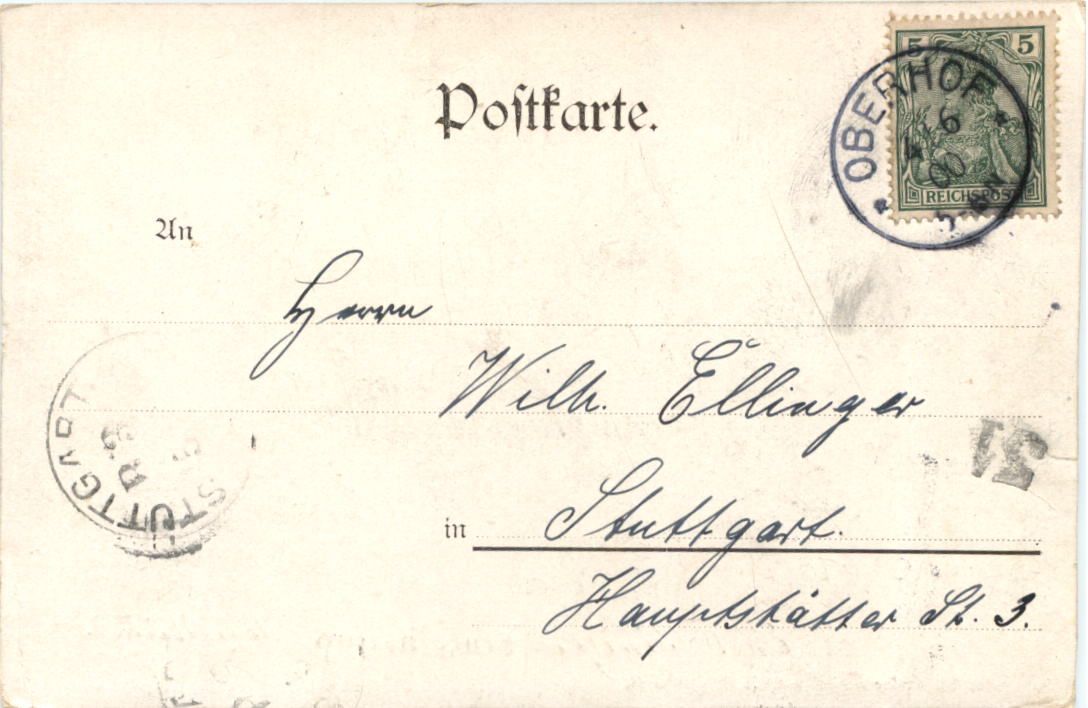 Postkarte.
5 5
REICHSPOST
OBERHOF
4 6
00
An
Herrn
Wilh. Ellinger
STUTTGART
31
in Stuttgart.
Hauptstätter St. 3.